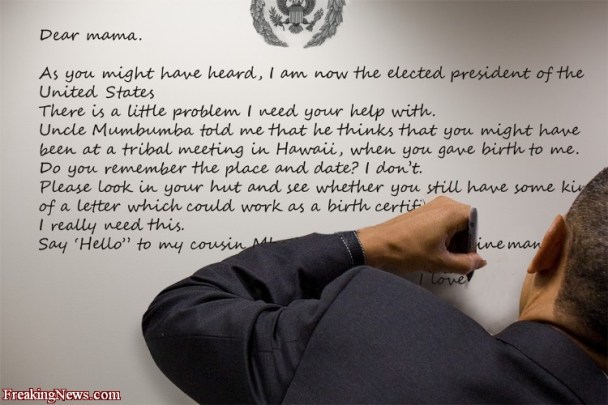 Dear mama.
As you might have heard, I am now the elected president of the
United States
There is a little problem I need your help with.
Uncle Mumbumba told me that he thinks that you might have
been at a tribal meeting in Hawaii, when you gave birth to me.
Do you remember the place and date? I don't.
Please look in your hut and see whether you still have some kin
of a letter which could work as a birth certifi
I really need this.
Say 'Hello" to my cousin
I love
FreakingNews.com